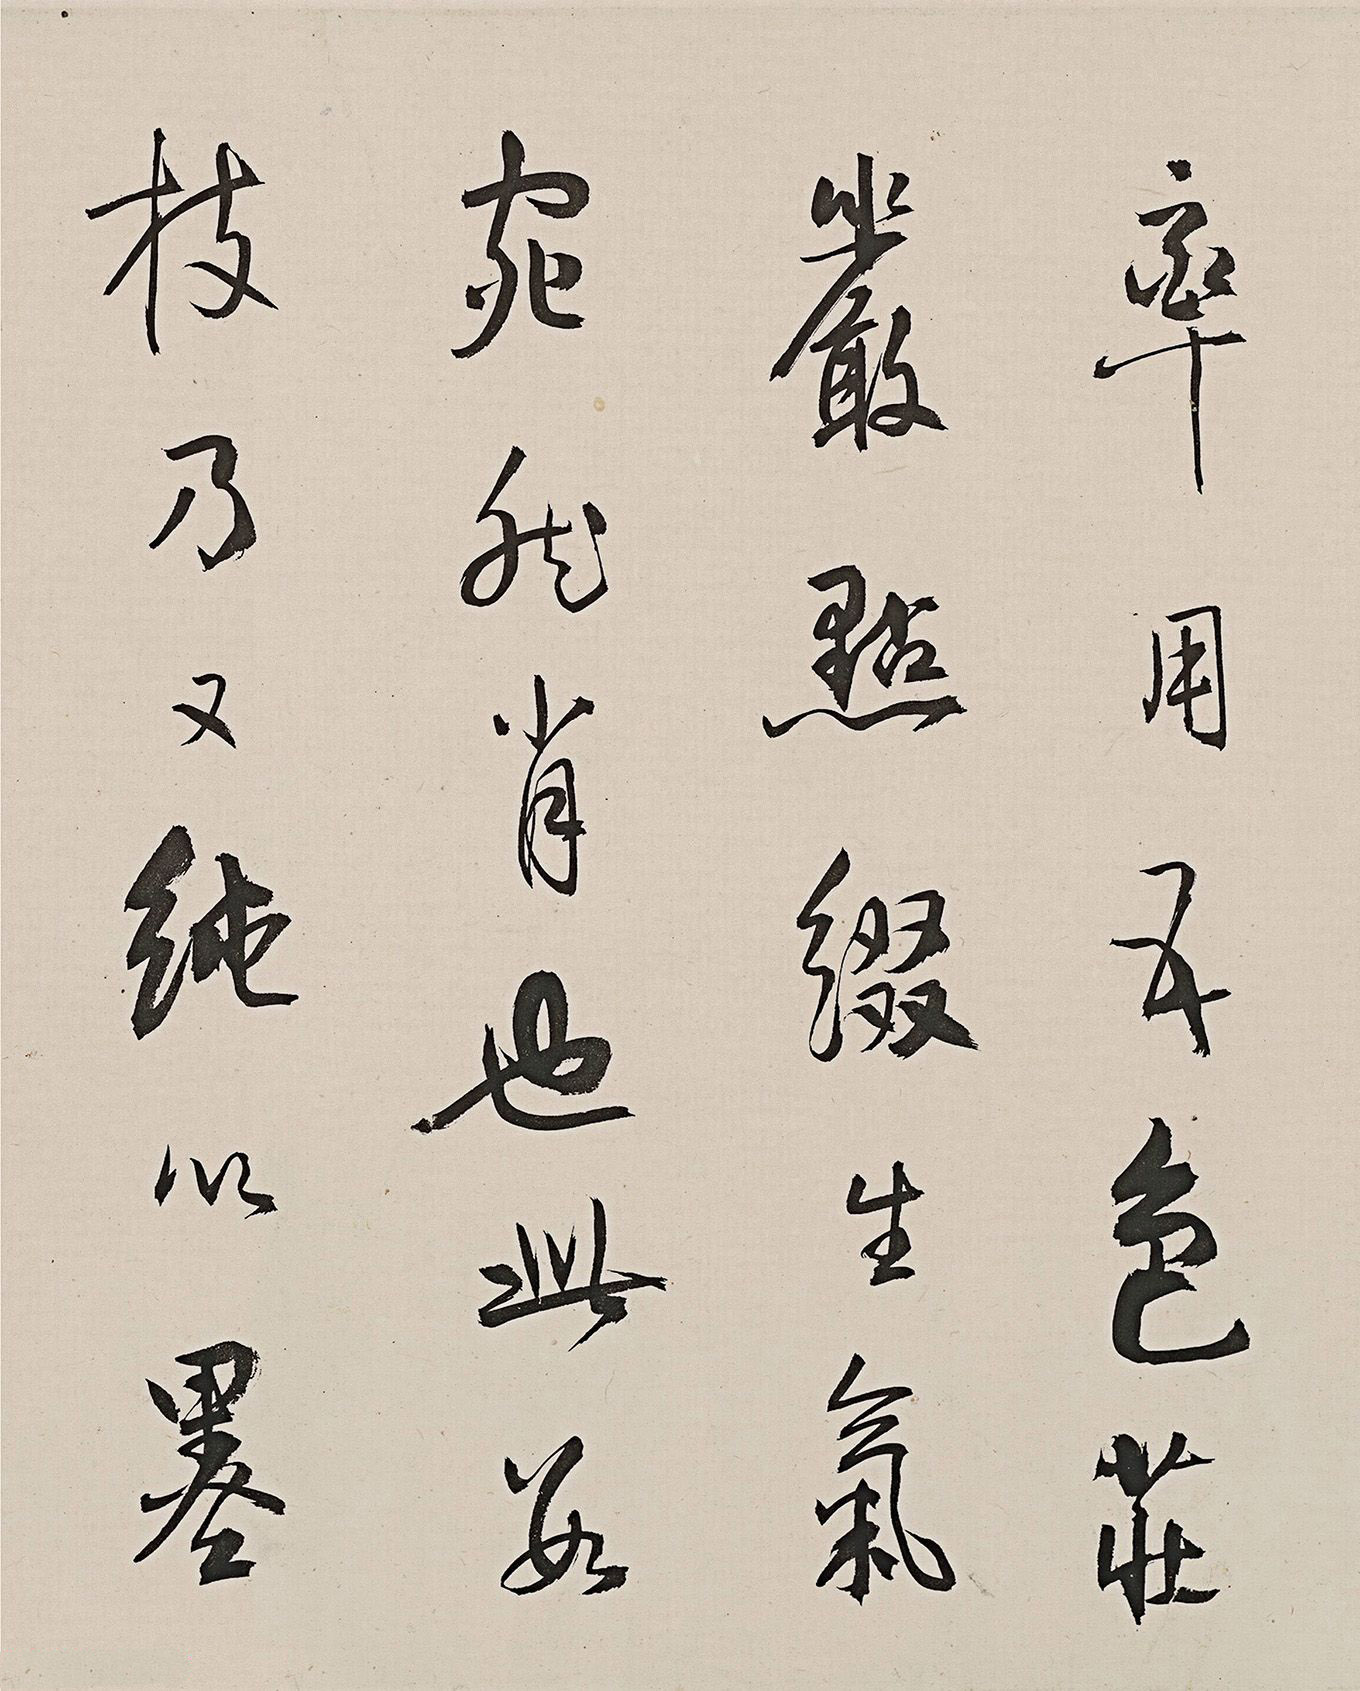 率用五色莊
嚴點綴生氣
宛然肖也此数
枝乃又純以墨